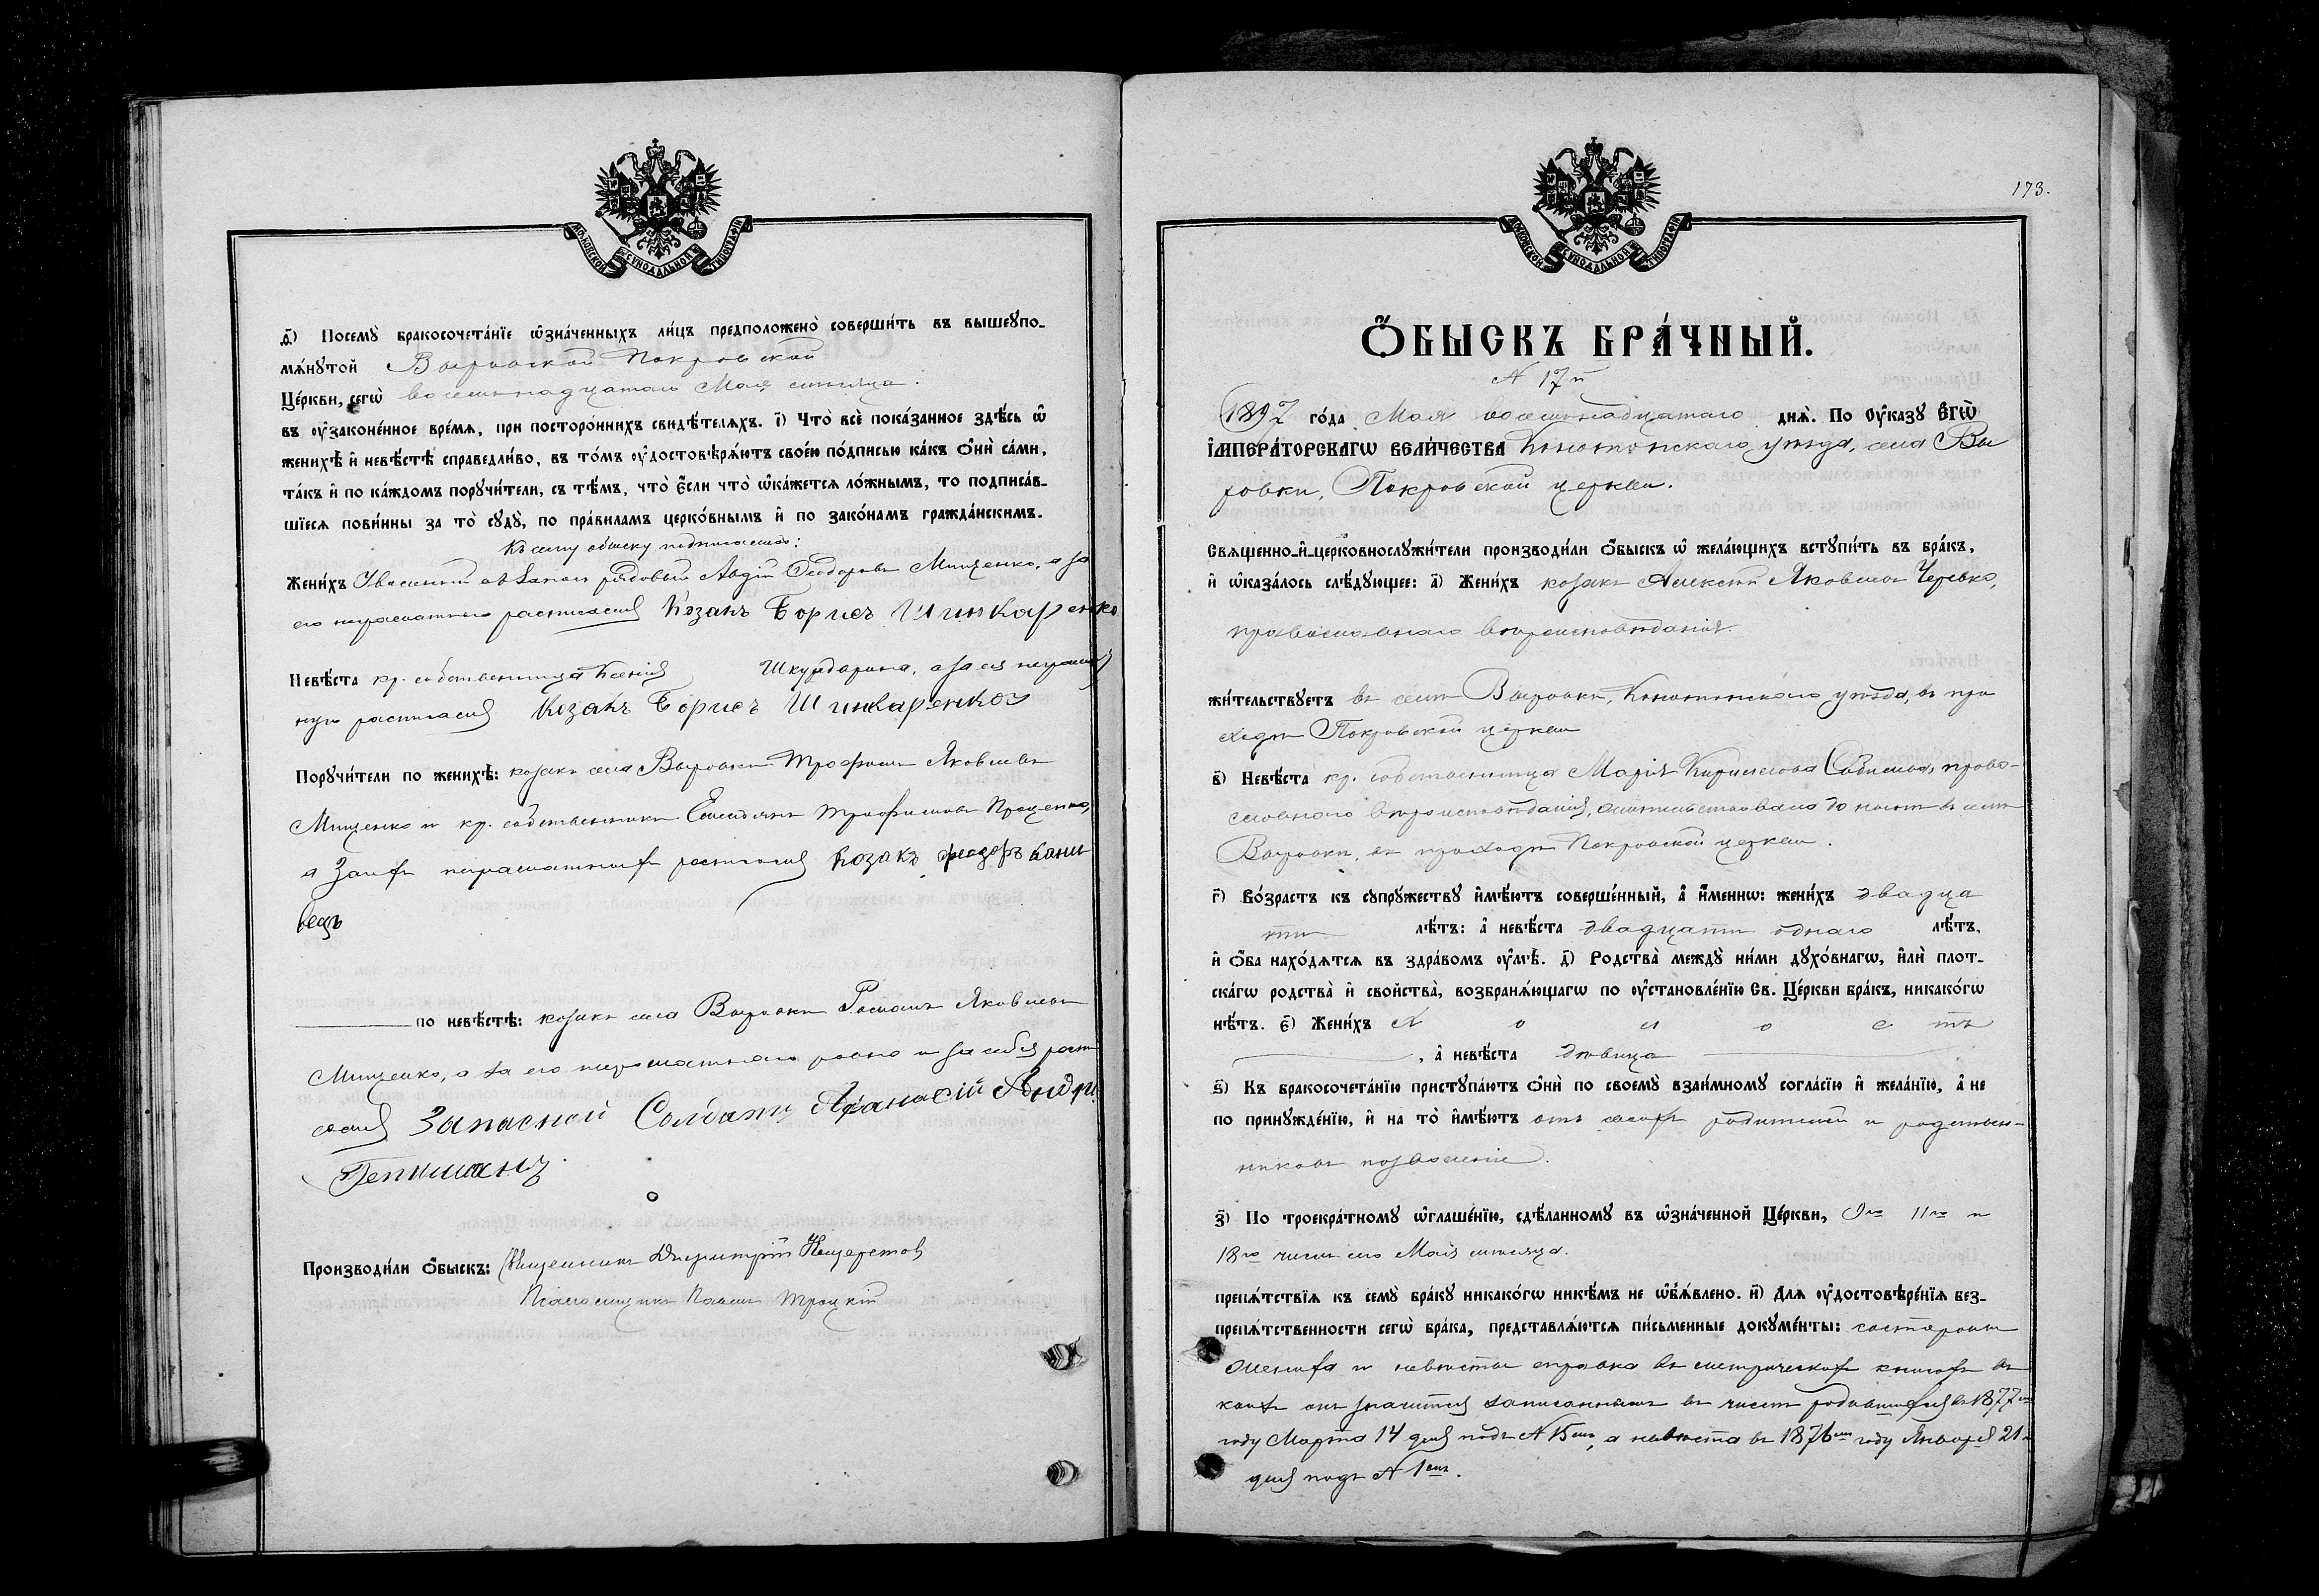 МОСКОВСКОЙ СѴНОДАЛЬНОЙ ТИПОГРАФІИ
д҃і) Посемꙋ̀ бракосочета́нїе ѡ҆зна́ченныхъ ли́цъ предположено̀ соверши́ть въ вышеꙋпо-
мѧ́нꙋтой Выровской Покровской
Це́ркви, сегѡ̀ восемнадцатаго Мая месяца.
въ ᲂу҆законе́нное вре́мѧ, при посторо́ннихъ свидѣ́телѧхъ. і҃) Что̀ всѐ пока́занное здѣ́сь ѡ҆
женихѣ̀ и҆ невѣ́стѣ справедли́во, въ то́мъ ᲂу҆достовѣрѧ́ютъ свое́ю по́дписью ка́къ ѻ҆нѝ са́ми,
та́къ и҆ по ка́ждомъ порꙋчи́тели, съ тѣ́мъ, что̀ є҆́сли что̀ ѡ҆ка́жетсѧ ло́жнымъ, то подписа́в-
шїесѧ пови́нны за то̀ сꙋдꙋ̀, по пра́виламъ церко́внымъ и҆ по зако́намъ гражда́нскимъ.
Къ сему обыску подписались:
Жени́хъ Уволенный въ Запасъ рядовый Авдій Ѳеодоровъ Мищенко, а за
его неграмотнаго росписался Козакъ Борисъ Шинкаренко
Невѣ́ста кр. собственница Ксенія Шкурдорина, а за ея неграмот
ную росписался Козакъ Борисъ Шинкаренко
Порꙋчи́тели по женихѣ̀: козакъ села Выровки Трофимъ Яковлевъ
Мищенко и кр. собственникъ Трофимовъ Проценко,
а за ихъ неграмотныхъ росписался Козакъ Феодоръ Кани
вецъ
по невѣ́стѣ: козакъ села Выровки Романъ Яковлевъ
Мищенко, а за его неграмотнаго равно и за себя роспи
сался Запасной Солдатъ Афанасій Андр.
Гепшманъ.
Производи́ли ѻ҆́быскъ: Священникъ Димитрій
Псаломщикъ Павелъ Троцкій
173.
МОСКОВСКОЙ СѴНОДАЛЬНОЙ ТИПОГРАФІИ
Ѻ҆́БЫСКЪ БРА́ЧНЫЙ.
№ 17й
1897 го́да Мая восемнадцатаго днѧ̀. По ᲂу҆ка́зꙋ Є҆ГѠ̀
І҆МПЕРА́ТОРСКАГѠ ВЕЛИ́ЧЕСТВА Конотопскаго уѣзда, села Вы
ровки, Покровской церкви.
Свѧще́нно-и҆-церковнослꙋжи́тели производи́ли ѻ҆́быскъ ѡ҆ жела́ющихъ встꙋпи́ть въ бра́къ,
и҆ ѡ҆каза́лось слѣ́дꙋющее: а҃) Жени́хъ козакъ Алексѣй Яковлевъ Черевко,
православнаго вѣроисповѣданія.
жи́тельствꙋетъ въ селѣ Выровкѣ, Конотопскаго уѣзда, въ при
ходѣ Покровской церкви
в҃) Невѣ́ста кр. собственница Марія Кириллова право-
славнаго вѣроисповѣданія, жительствовала до нынѣ въ селѣ
Выровкѣ, въ приходѣ Покровской церкви.
г҃) Во́зрастъ къ сꙋпрꙋ́жествꙋ и҆мѣ́ютъ соверше́нный, а҆ и҆́меннѡ: жени́хъ двадца
ти лѣ́тъ: а҆ невѣ́ста двадцати однаго лѣ́тъ,
и҆ ѻ҆́ба нахо́дѧтсѧ въ здра́вомъ ᲂу҆мѣ̀. д҃) Родства̀ междꙋ̀ ни́ми дꙋхо́внагѡ, и҆лѝ плот-
ска́гѡ родства̀ и҆ сво́йства, возбранѧ́ющагѡ по ᲂу҆становле́нїю Св. Це́ркви бра́къ, никако́гѡ
нѣ́тъ. є҃) Жени́хъ х о л о с тъ
, а҆ невѣ́ста дѣвица
ѕ҃) Къ бракосочета́нїю пристꙋпа́ютъ ѻ҆нѝ по своемꙋ̀ взаи́мномꙋ согла́сїю и҆ жела́нїю, а҆ не
по принꙋжде́нїю, и҆ на то̀ и҆мѣ́ютъ отъ своихъ родителей и родствен-
никовъ позволеніе.
з҃) По троекра́тномꙋ ѡ҆глаше́нїю, сдѣ́ланномꙋ въ ѡ҆зна́ченной Це́ркви, 9го 11го и
18го чиселъ Мая месяца.
препѧ́тствїѧ къ семꙋ̀ бра́кꙋ никако́гѡ никѣ́мъ не ѡ҆б̾ѧ́влено. и҃) Длѧ ᲂу҆достовѣре́нїѧ без-
препѧ́тственности сегѡ̀ бра́ка, представлѧ́ютсѧ пи́сьменные докꙋме́нты:
жениха и невѣсты справка въ метрическихъ книгахъ въ
коихъ онъ значится записаннымъ въ числѣ родившихся въ 1877мъ
году Марта 14 дня подъ № 15мъ, а невѣста въ 1876мъ году Января 21го
дня подъ № 1мъ.